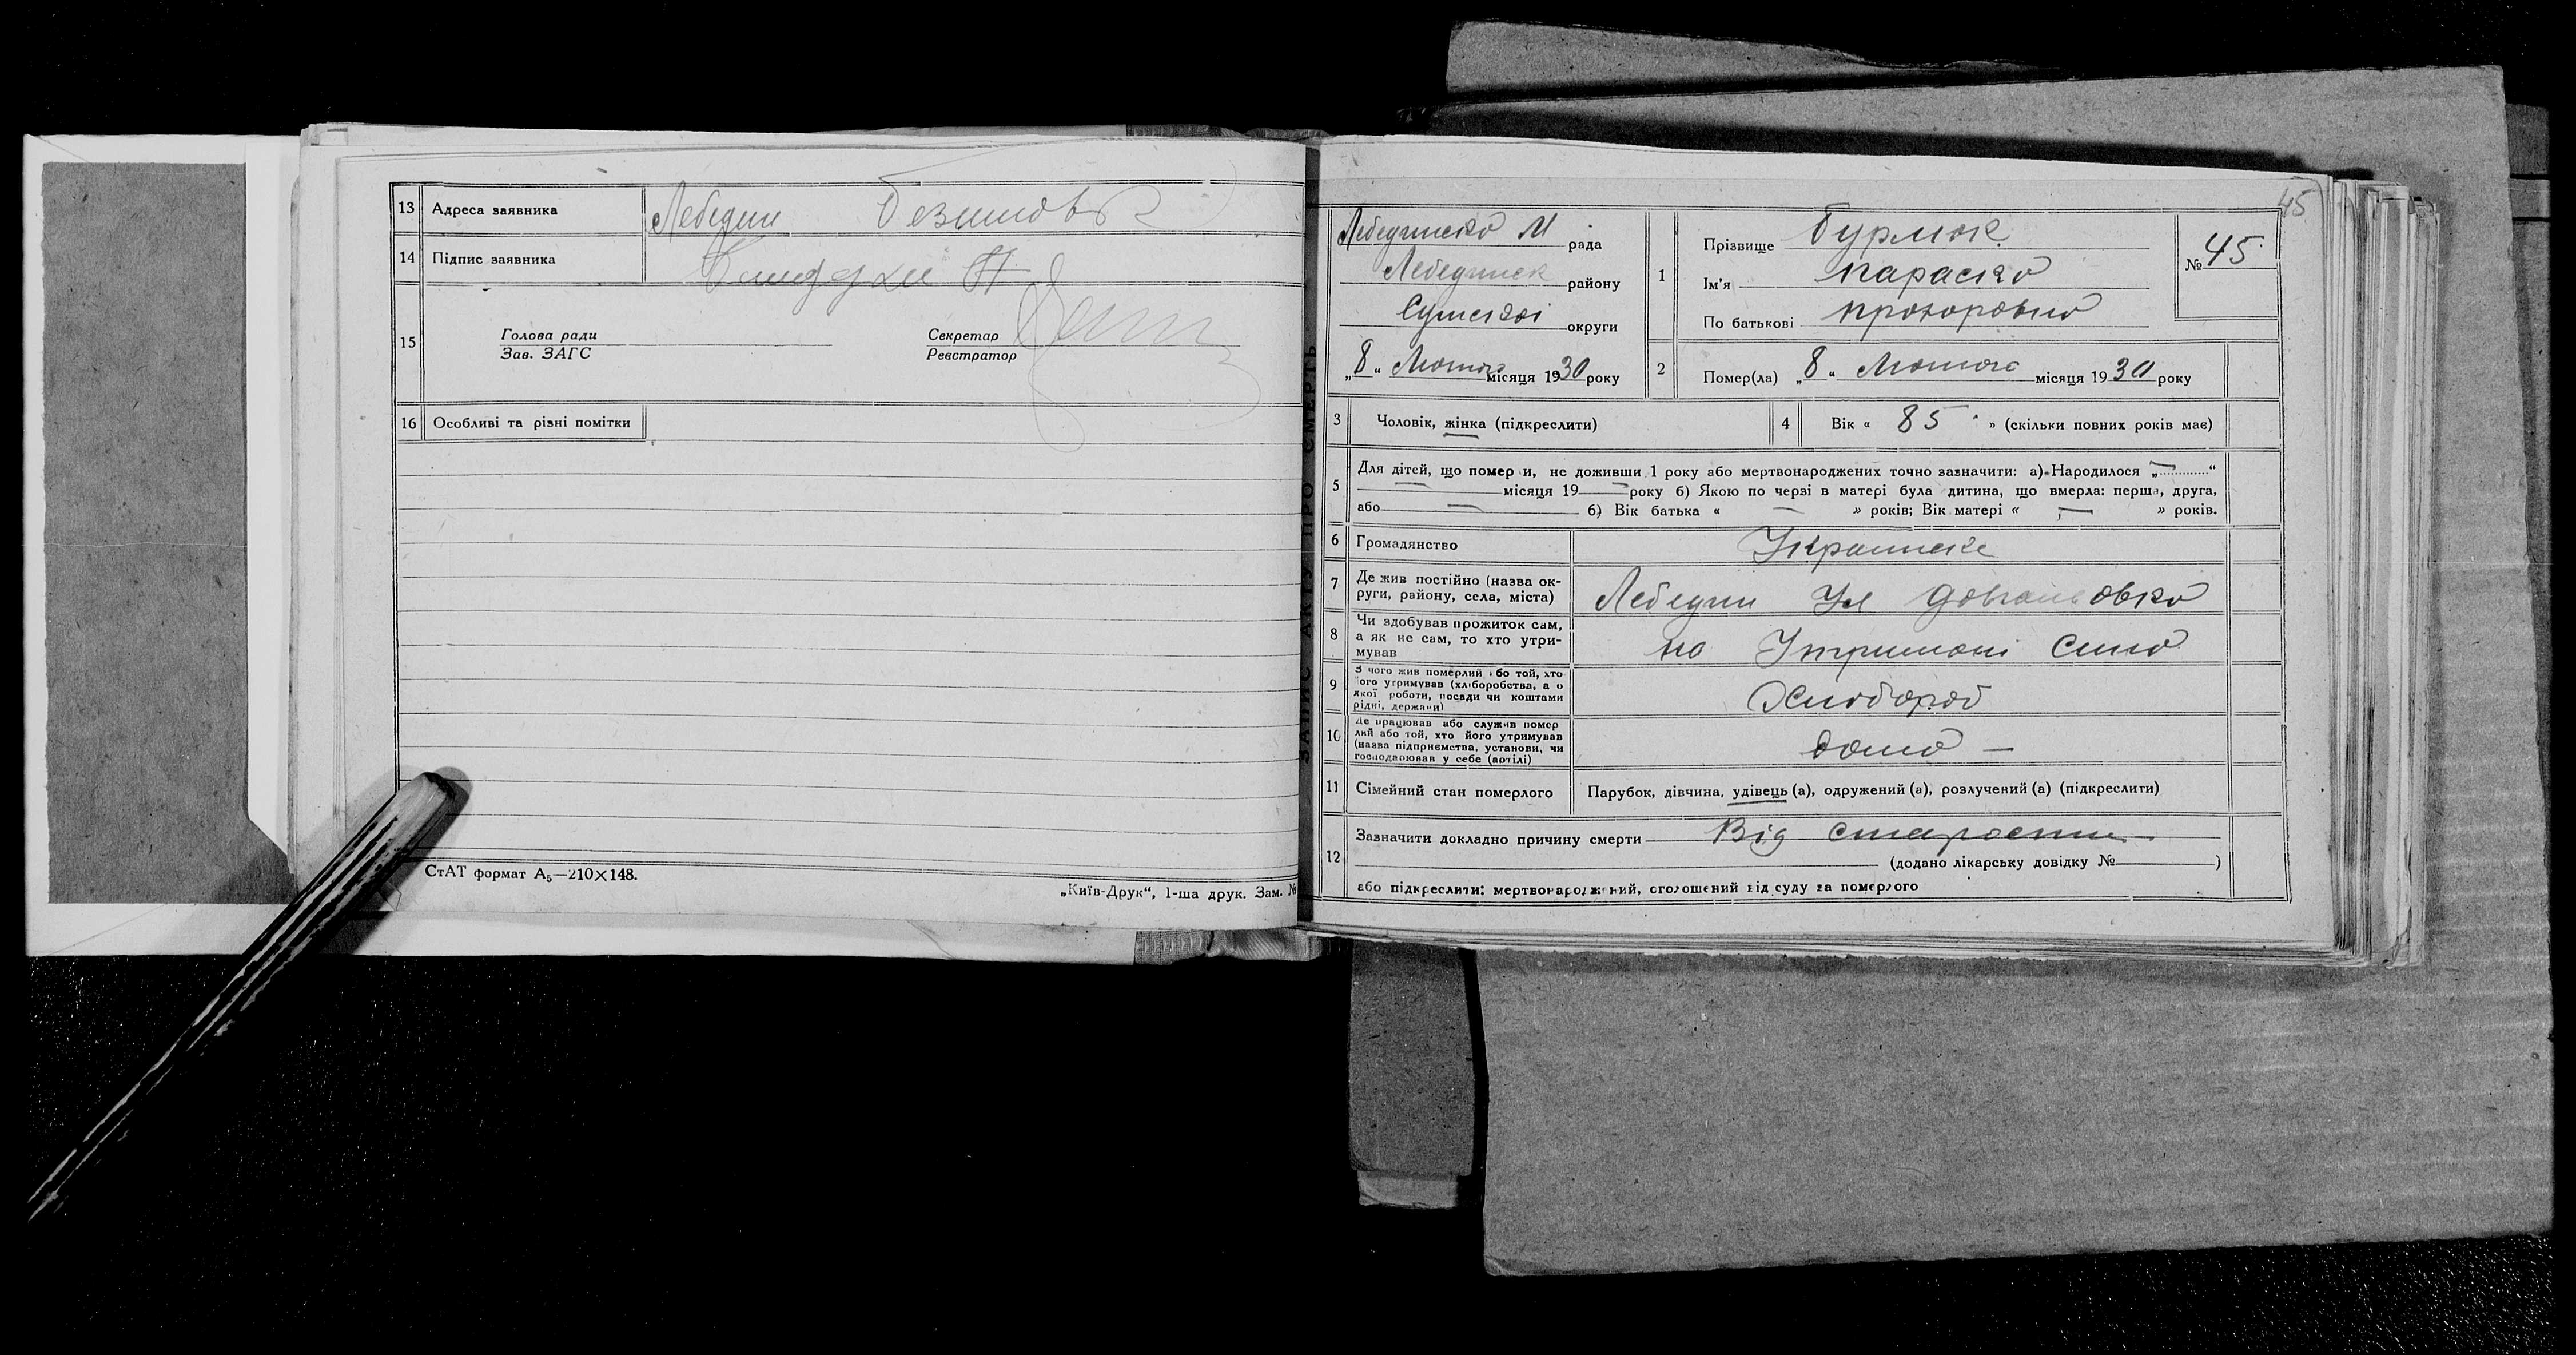 13 Адреса заявника Лебедин
14 Підпис заявника
15 Голова ради
Зав. ЗАГС
Секретар
Реєстратор
16 Особливі та різні помітки
СтАТ формат А₅—210×148.
„Київ-Друк“, 1-ша друк. Зам. №
ЗАПИС АКТУ ПРО СМЕРТЬ
45
Лебединско М рада
Лебединск району
Сумскої округи
„8“ Лютого місяця 1930 року
1 Прізвище Бурмок
Ім'я Параско
По батькові Прохоровно
№ 45
2 Помер(ла) „8“ Лютого місяця 1930 року
3 Чоловік, жінка (підкреслити)
4 Вік « 85 » (скільки повних років має)
5 Для дітей, що померли, не доживши 1 року або мертвонароджених точно зазначити: а) Народилося „—“
— місяця 19— року б) Якою по черзі в матері була дитина, що вмерла: перша, друга,
або — б) Вік батька « — » років; Вік матері « — » років.
6 Громадянство Украинске
7 Де жив постійно (назва ок-
руги, району, села, міста) Лебедин Ул
8 Чи здобував прожиток сам,
а як не сам, то хто утри-
мував на Утримані сина
9 З чого жив померлий або той, хто
його утримував (хліборобства, а о
якої роботи, посади чи коштами
рідні, держави) Хлибороб
10 Де працював або служив помер
лий або той, хто його утримував
(назва підприємства, установи, чи
господарював у себе (артілі) дома —
11 Сімейний стан померлого Парубок, дівчина, удівець (а), одружений (а), розлучений (а) (підкреслити)
12 Зазначити докладно причину смерти Від старости
(додано лікарську довідку № )
або підкреслити: мертвонароджений, оголошений від суду за померлого